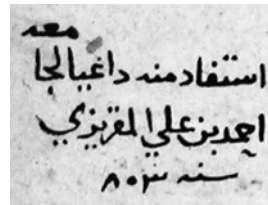 استفاد منه داعيا
احمد بن علي المقريزي
سنه ٨٠٣